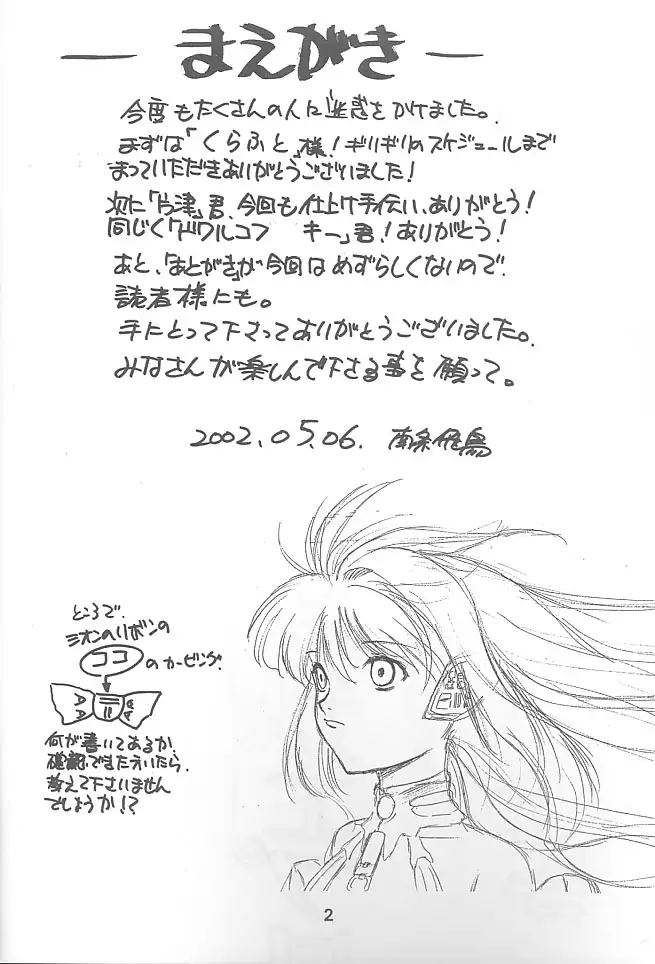 まえがき
今度もたくさんの人に迷惑をかけました。
まずは「くらふと」様！ギリギリのスケジュールまで
まっていただきありがとうございました！
次に「片津」君、今回も仕上げ手伝い、ありがとう！
同じく「ドワルコフ　キー」君！ありがとう！
あと、「あとがき」が今回はめずらしくないので、
読者様にも。
手にとって下さってありがとうございました。
みなさんが楽しんで下さる事を願って。
2002.05.06. 南条飛鳥
ところで、
シオンのリボンの
ココ
のカービング、
何が書いてあるか、
確認できた方いたら、
教えて下さいません
でしょうか！？
2